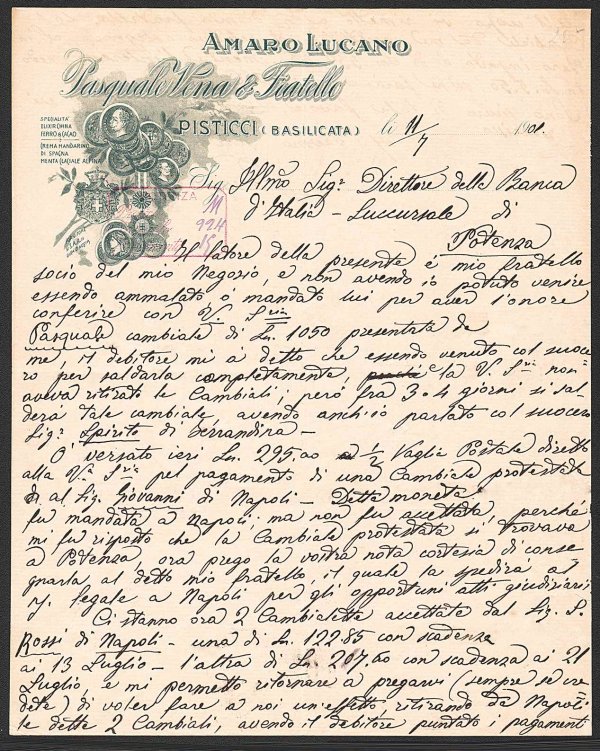 AMARO LUCANO
Pasquale Vena & Fratello
SPECIALITÀ
ELIXIR CHINA
FERRO & CACAO
CREMA MANDARINO
DI SPAGNA
MENTA GLACIALE ALPINA
PISTICCI (BASILICATA) li 11/7 1901.
924
Ill.mo Sig.r Direttore della Banca
d'Italia - Succursale di
Potenza
Il latore della presente è mio fratello
socio del mio Negozio, e non avendo io potuto venire
essendo ammalato ò mandato lui per aver l'onore
conferire con V. S.ria
Pasquale cambiale di Ln. 1050 presentata da
me, il debitore mi à detto che essendo venuto col suoce
ro per saldarla completamente, perchè la V. S.ria non
aveva ritirato le Cambiali; però fra 3 o 4 giorni si sal
derà tale cambiale avendo anch'io parlato col suocero
Sig.r Spirito di Ferrandina -
O' versato ieri Ln. 295,00 1/2 Vaglia Postale diretto
alla V.a S.ria pel pagamento di una Cambiale protestata
al Sig. Giovanni di Napoli - Detta moneta
fu mandata a Napoli, ma non fu accettata, perchè
mi fu risposto che la Cambiale protestata si trovava
a Potenza, ora prego la vostra nota cortesia di conse
gnarla al detto mio fratello, il quale la spedirà al
legale a Napoli per gli opportuni atti giudiziarii
Ci stanno ora 2 Cambialette accettate dal Sig. S.
Rossi di Napoli - una di Ln. 122.85 con scadenza
ai 13 Luglio - l'altra di Ln. 207,60 con scadenza ai 21
Luglio e mi permetto ritornare a pregarvi (sempre se cre
dete) di voler fare a noi un'effetto, ritirando da Napoli
le dette 2 Cambiali, avendo il debitore puntato i pagamenti